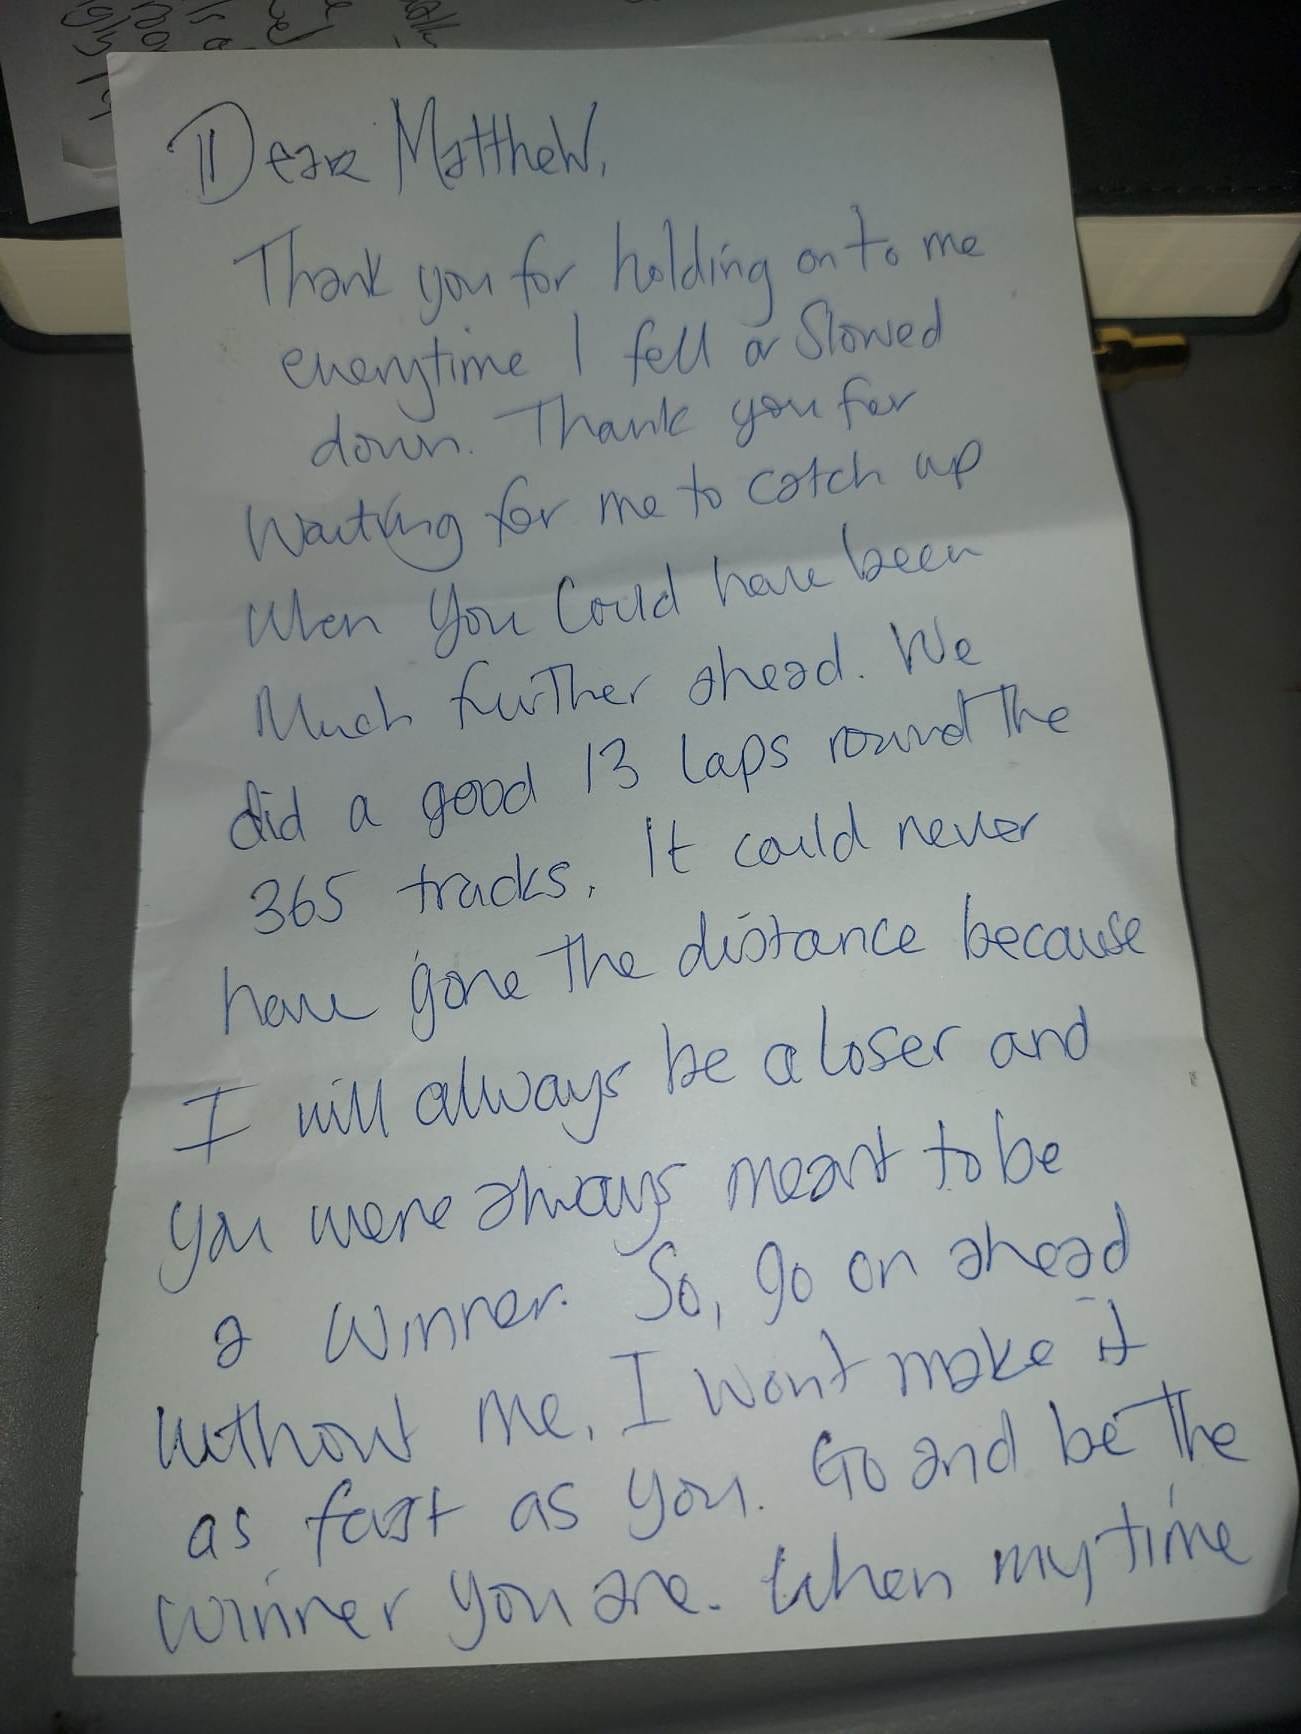 Dear Matthew,
Thank you for holding on to me
everytime I fell or Slowed
down. Thank you for
Waiting for me to catch up
When You Could have been
Much further ahead. We
did a good 13 laps round the
365 tracks. It could never
have gone the distance because
I will always be a loser and
you were always meant to be
a Winner. So, go on ahead
without me. I wont make it
as fast as you. Go and be the
winner you are. When my time